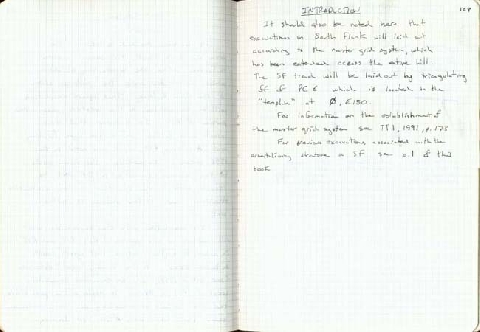 INTRODUCTION 107
It should also be noted here that
excavations on South Flank will laid out
according to the master grid system, which
has been extended across the entire hill
The SF trench will be laid out by triangulating
off of which is located in the
"temple" at Ø,
For information on the establishment of
the master grid system see 1991, p. 175
For previous excavations associated with the
on SF see p.1 of this
book